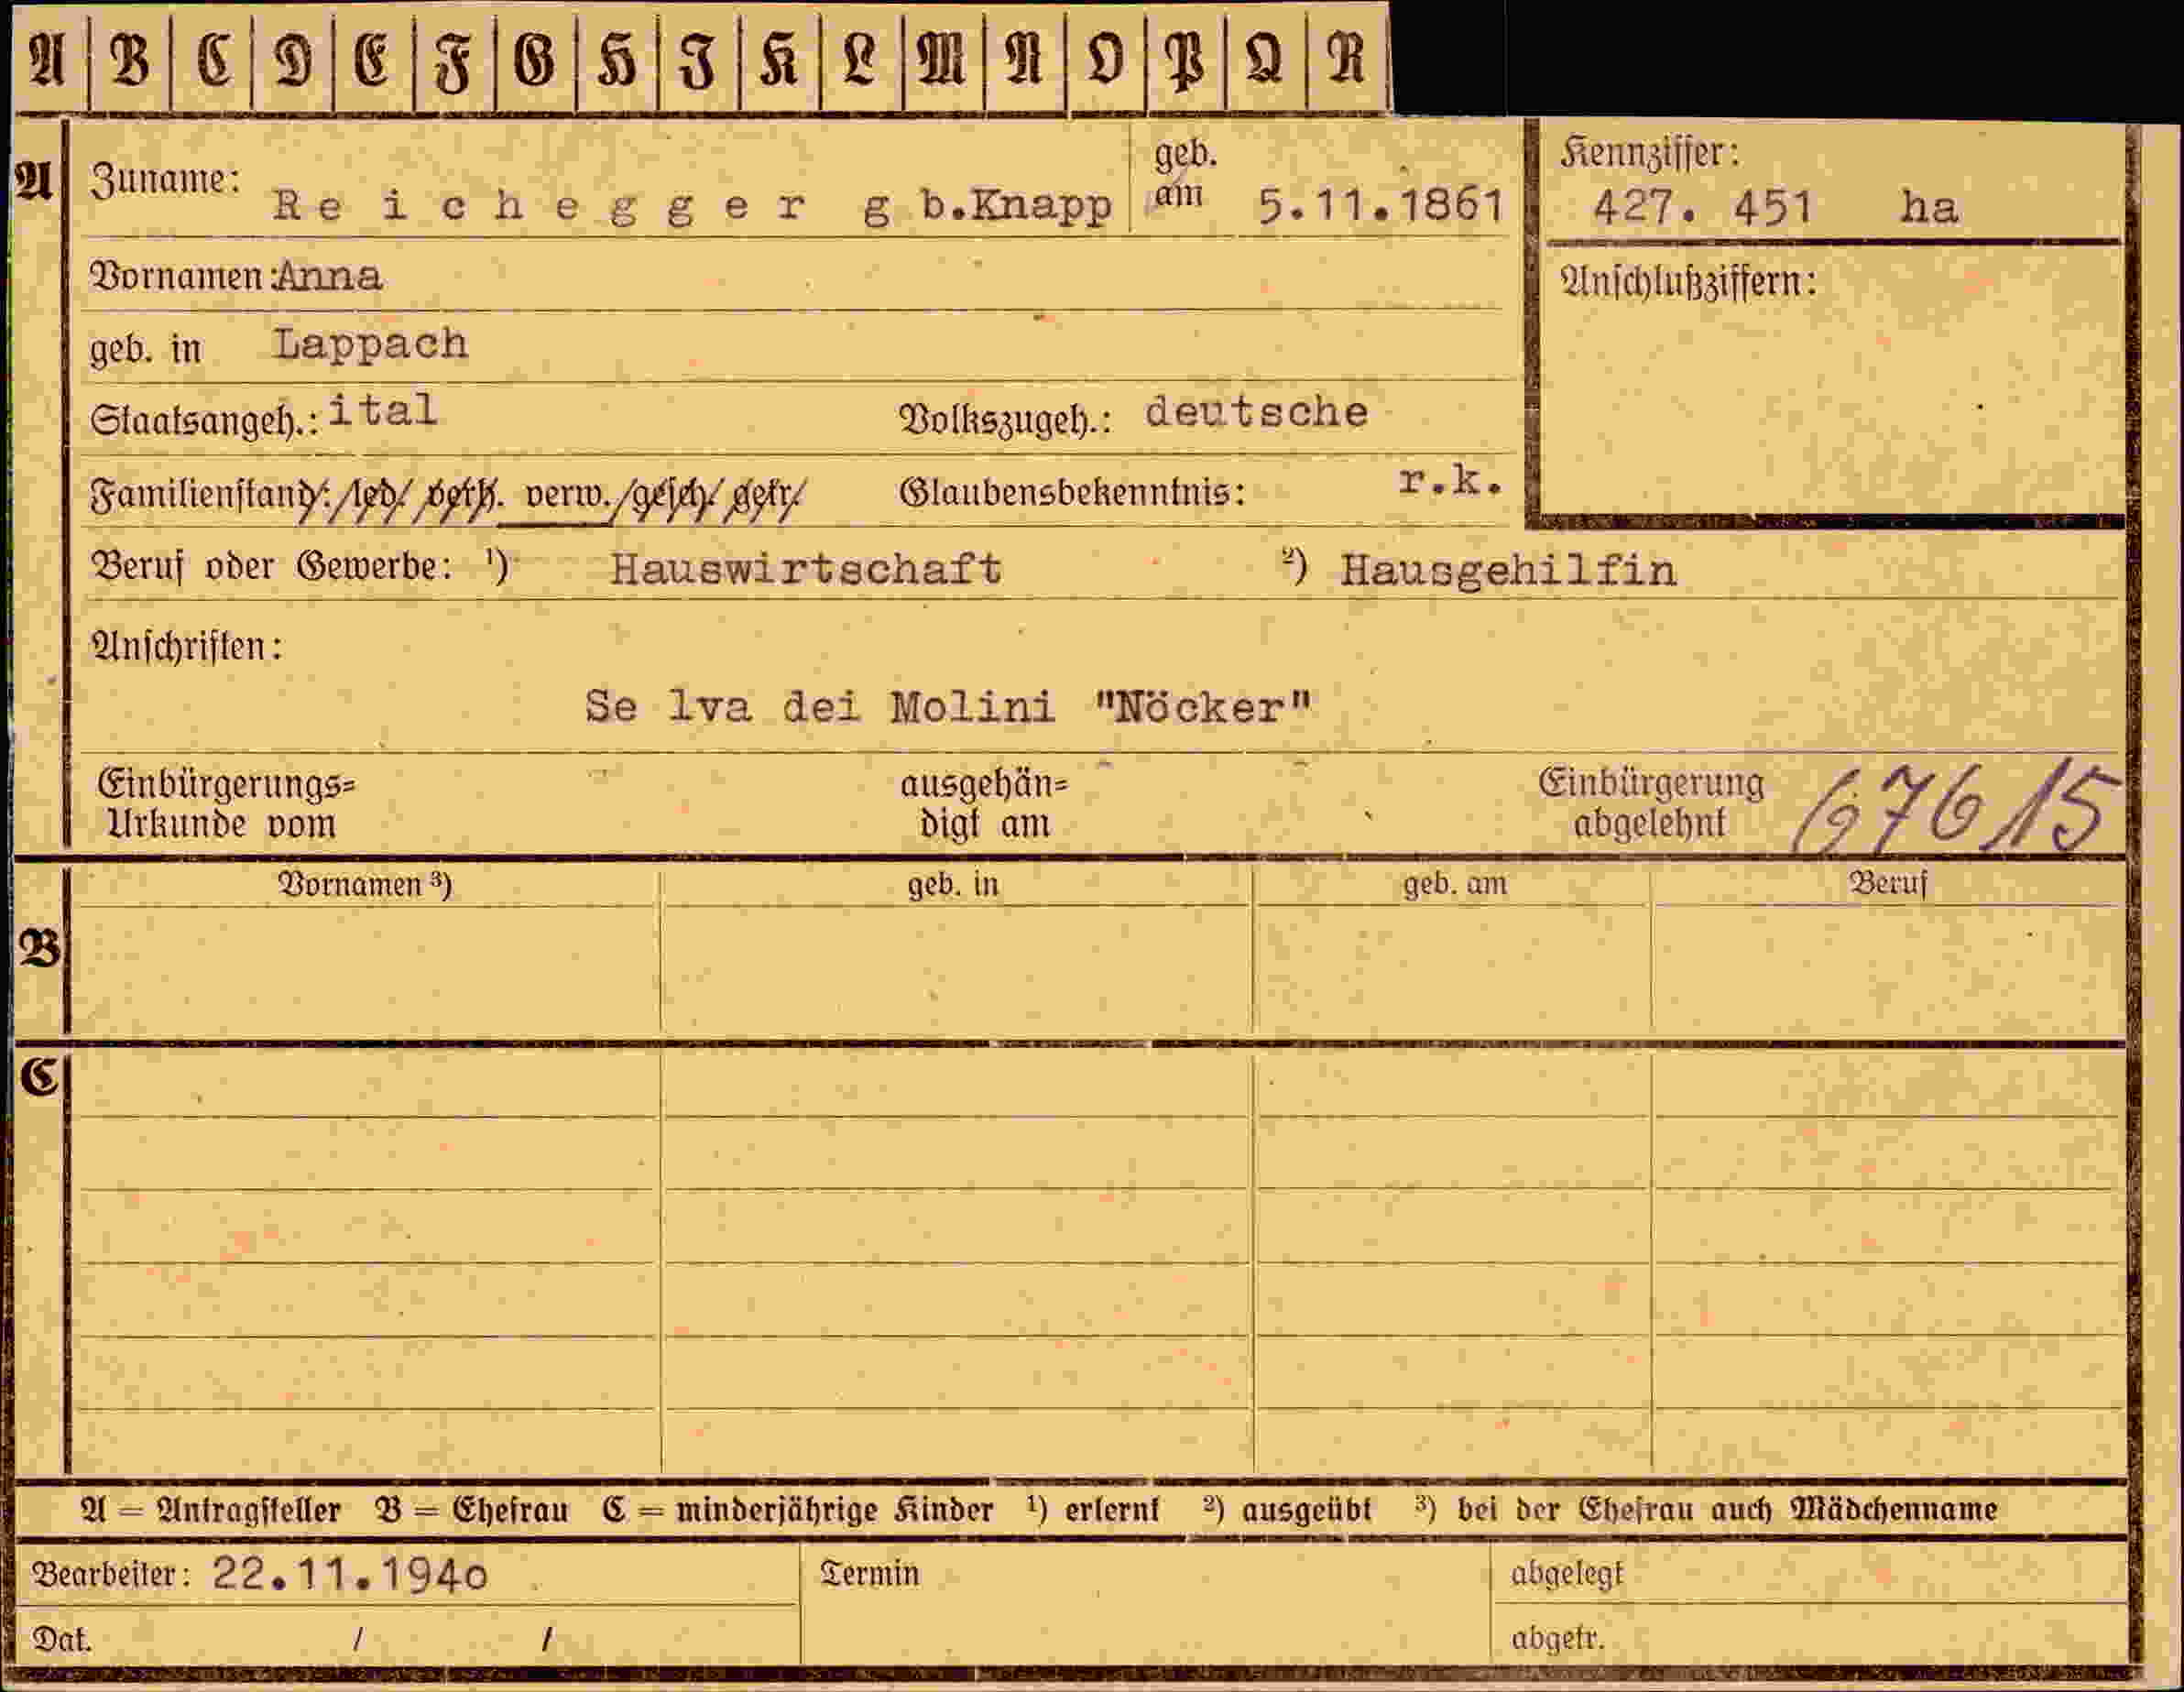 A B C D E F G H J K L M N O P Q R
A
Zuname: Reichegger g b.Knapp
geb. am 5.11.1861
Kennziffer:
427. 451 ha
Vornamen: Anna
Anschlußziffern:
geb. in Lappach
Staatsangeh.: ital Volkszugeh.: deutsche
Familienstand: led. verh. verw. gesch. getr. Glaubensbekenntnis: r.k.
Beruf oder Gewerbe: ¹) Hauswirtschaft ²) Hausgehilfin
Anschriften:
Se lva dei Molini "Nöcker"
Einbürgerungs= ausgehän= Einbürgerung
Urkunde vom digt am abgelehnt
67615
B
Vornamen ³) geb. in geb. am Beruf
C
A = Antragsteller B = Ehefrau C = minderjährige Kinder ¹) erlernt ²) ausgeübt ³) bei der Ehefrau auch Mädchenname
Bearbeiter: 22.11.194o Termin abgelegt
Dat. / / abgetr.